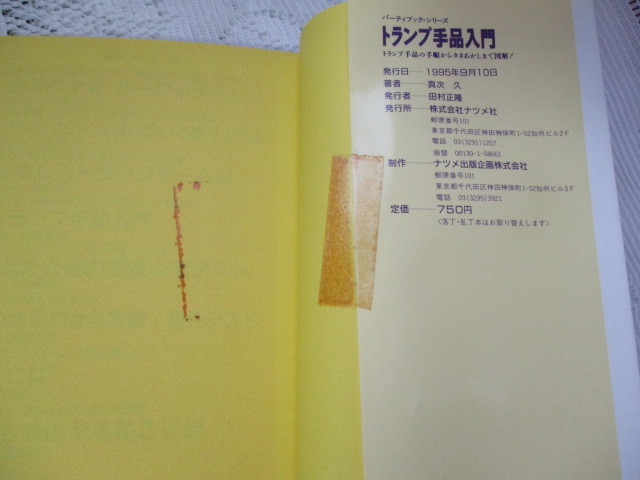 パーティブック・シリーズ
トランプ手品入門
トランプ手品の手順からタネあかしまで図解!
発行日——1995年9月10日
著者——真次 久
発行者——田村正隆
発行所——株式会社ナツメ社
郵便番号101
東京都千代田区神田神保町1-52加州ビル2F
電話 03(3291)1257
振替 00130-1-58661
制作——ナツメ出版企画株式会社
郵便番号101
東京都千代田区神田神保町1-52加州ビル3F
電話 03(3295)3921
定価——750円
〈落丁・乱丁本はお取り替えします〉